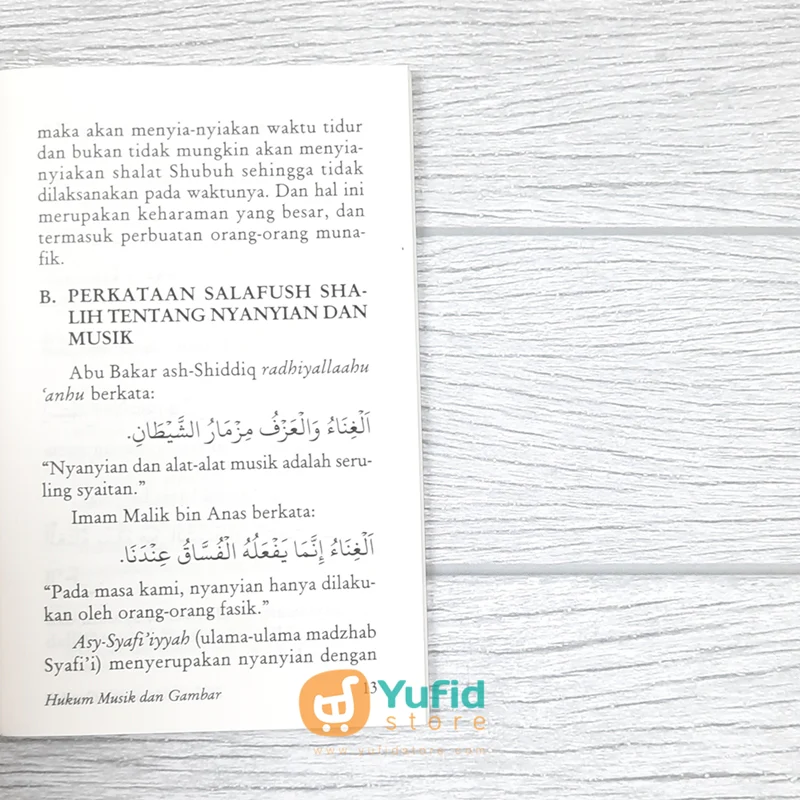 maka akan menyia-nyiakan waktu tidur
dan bukan tidak mungkin akan menyia-
nyiakan shalat Shubuh sehingga tidak
dilaksanakan pada waktunya. Dan hal ini
merupakan keharaman yang besar, dan
termasuk perbuatan orang-orang muna-
fik.
B. PERKATAAN SALAFUSH SHA-
LIH TENTANG NYANYIAN DAN
MUSIK
Abu Bakar ash-Shiddiq radhiyallaahu
‘anhu berkata:
اَلْغِنَاءُ وَالْعَزْفُ مِزْمَارُ الشَّيْطَانِ.
“Nyanyian dan alat-alat musik adalah seru-
ling syaitan.”
Imam Malik bin Anas berkata:
اَلْغِنَاءُ إِنَّمَا يَفْعَلُهُ الْفُسَّاقُ عِنْدَنَا.
“Pada masa kami, nyanyian hanya dilaku-
kan oleh orang-orang fasik.”
Asy-Syafi’iyyah (ulama-ulama madzhab
Syafi’i) menyerupakan nyanyian dengan
Hukum Musik dan Gambar
13
Yufid
store
www.yufidstore.com